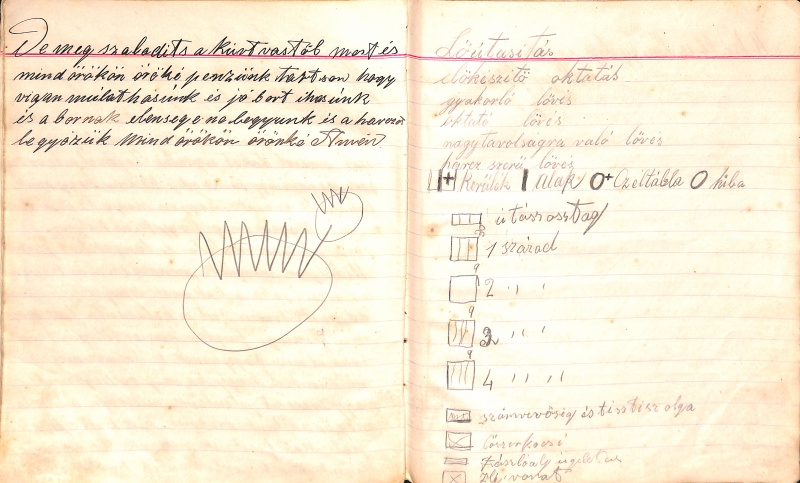 De meg szabadits a kürtvastól most és
mind örökön öröké penzünk tartson hogy
vigan mulathasúnk és jó bort ihasúnk
és a bornak elensege ne legyunk és a harczot
le gyözük mind örökön örönké Ámén
Lőútasitás
elökészitö oktatás
gyakorló lövés
oktató lövés
nagytavolsagra való lövés
harcz szerü lövés
Körülek Alak Czéltábla hiba
útászosztag
1 század
2 " "
3 " "
4 " " "
számvevöség és tisztiszolga